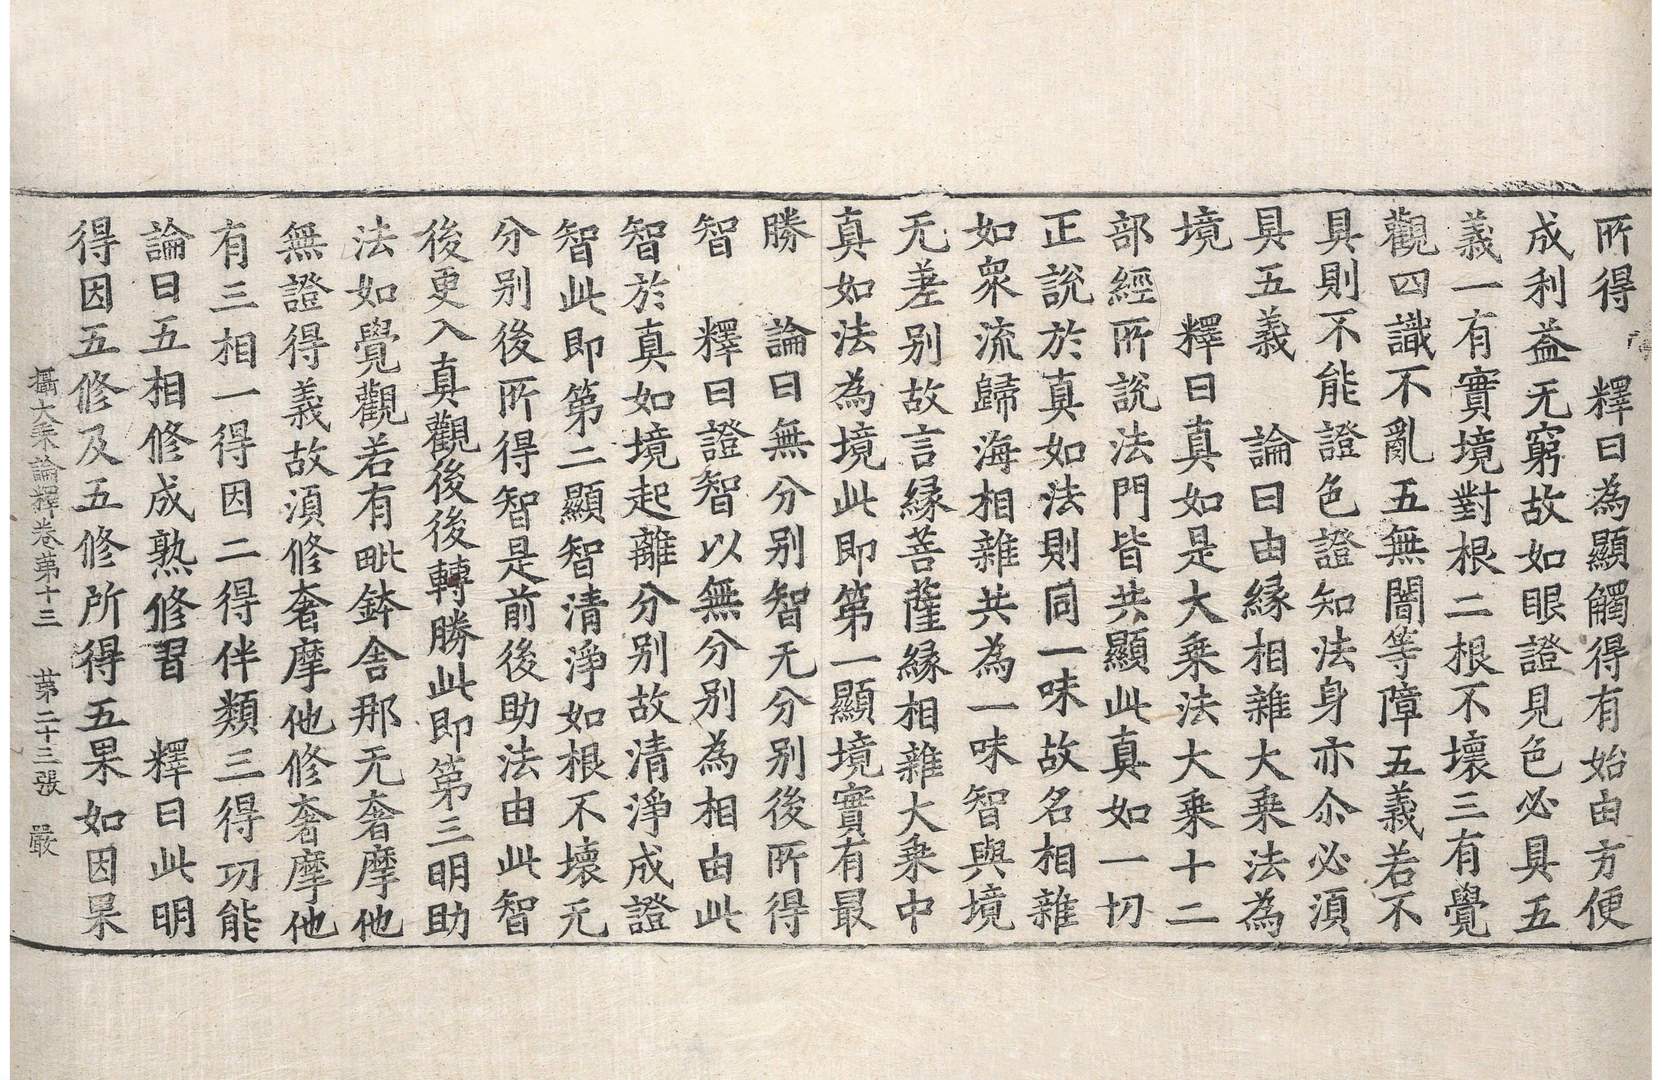 所得　釋曰為顯觸得有始由方便
成利益无窮故如眼證見色必具五
義一有實境對根二根不壞三有覺
觀四識不亂五無闇等障五義若不
具則不能證色證知法身亦尒必須
具五義　論曰由緣相雜大乗法為
境　釋曰真如是大乗法大乗十二
部經所說法門皆共顯此真如一切
正說於真如法則同一味故名相雜
如衆流歸海相雜共為一味智與境
无差別故言緣菩薩緣相雜大乗中
真如法為境此即第一顯境實有最
勝　論曰無分別智无分別後所得
智　釋曰證智以無分別為相由此
智於真如境起離分別故清淨成證
智此即第二顯智清淨如根不壞无
分別後所得智是前後助法由此智
後更入真觀後後轉勝此即第三明助
法如覺觀若有毗鉢舍那无奢摩他
無證得義故須修奢摩他修奢摩他
有三相一得因二得伴類三得功能
論曰五相修成熟修習　釋曰此明
得因五修及五修所得五果如因果
攝大乗論釋卷苐十三　苐二十三張　嚴